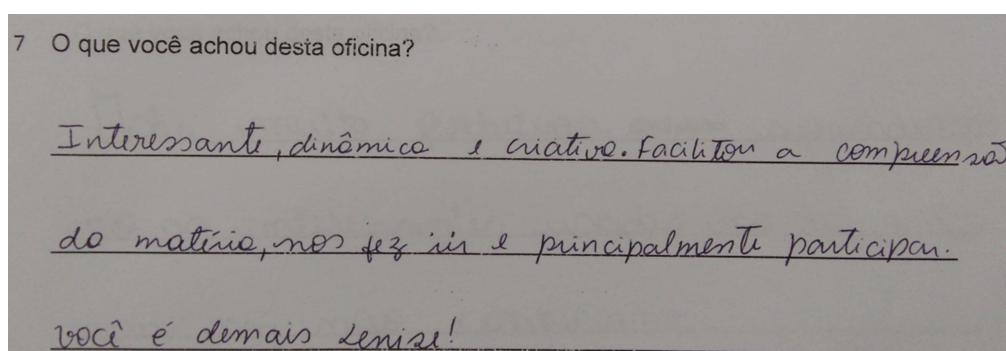 7 O que você achou desta oficina?
Interessante, dinâmica e criativa. Facilitou a compreensão
da matéria, nos fez rir e principalmente participar.
você é demais Lenise!